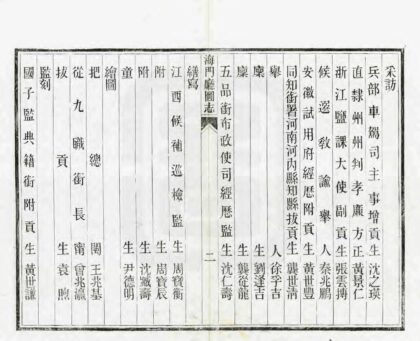 采訪
兵部車駕司主事增貢生沈之瑛
直隸州州判孝廉方正黃景仁
浙江鹽課大使副貢生張雲摶
候選教諭舉人秦兆鵬
安徽試用府經歷附貢生黃世豐
同知銜署河南河內縣知縣拔貢生龔世清
舉人徐孚吉
廩生劉逢吉
廩生龔從龍
五品銜布政使司經歷監生沈仁壽
海門廳圖志
二
繕寫
江西候補巡檢監生周寶衡
附生周寶辰
附生沈臧壽
童生尹德明
繪圖
把總閔王兆基
從九職銜長甯曾兆瀛
拔貢生袁煦
監刻
國子監典籍銜附貢生黃世謙